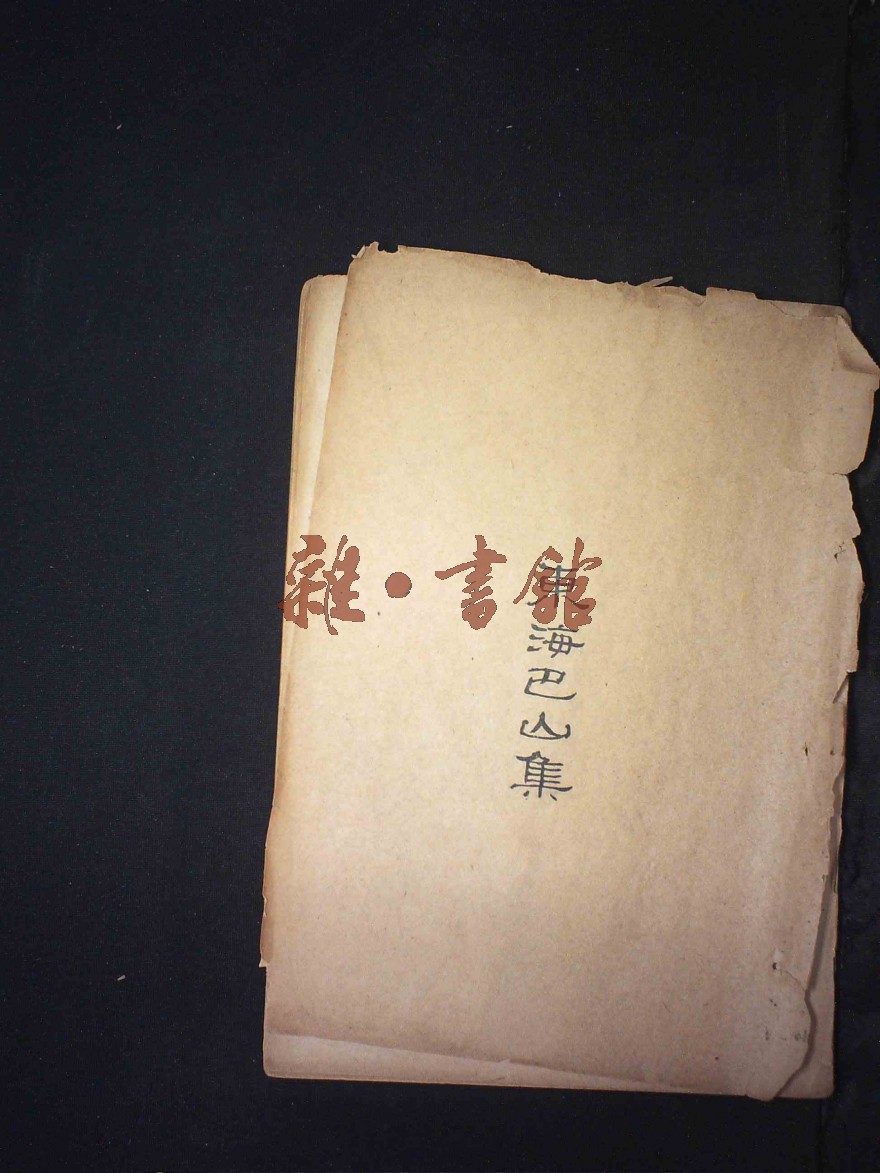 雜·書館
東海巴山集